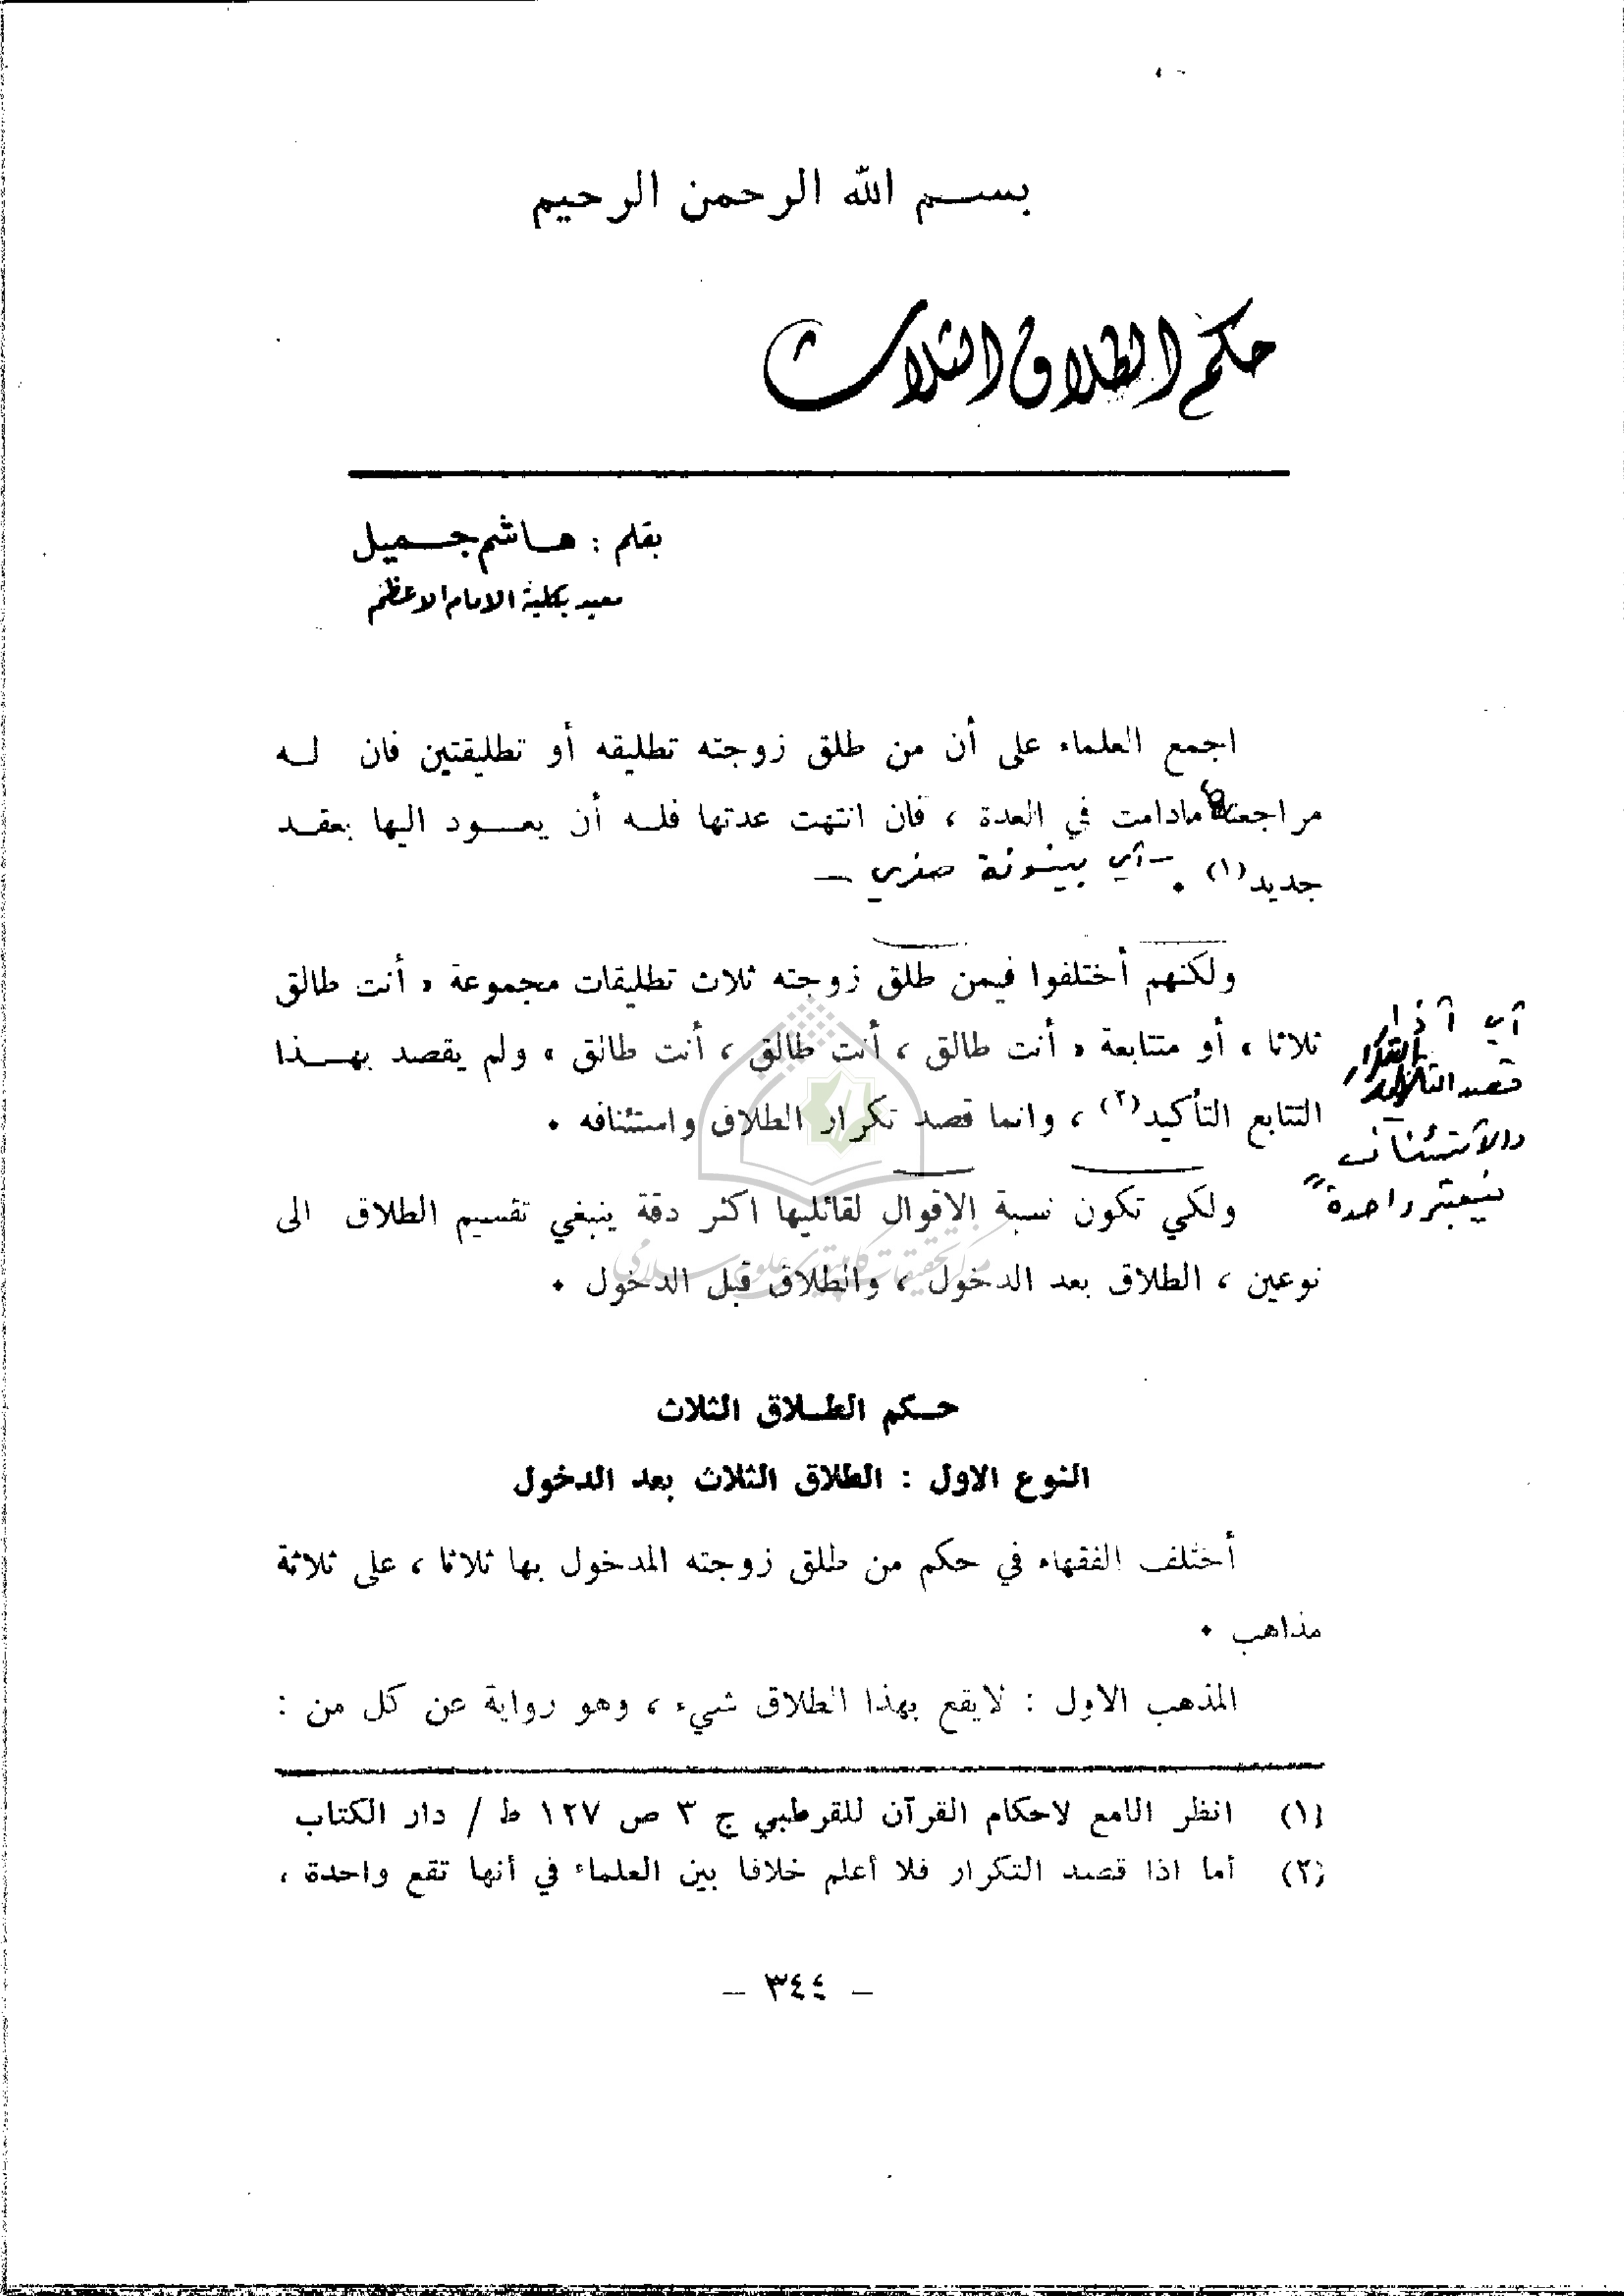 بسم الله الرحمن الرحيم
حكم الطلاق الثلاث
بقلم : هاشم جميل
معيد بكلية الامام الاعظم
اجمع العلماء على أن من طلق زوجته تطليقه أو تطليقتين فان له
مراجعتها مادامت في العدة ، فان انتهت عدتها فله أن يعود اليها بعقد
جديد(١) . – أي بينونة صغرى –
ولكنهم أختلفوا فيمن طلق زوجته ثلاث تطليقات مجموعة « أنت طالق
ثلاثا » أو متتابعة « أنت طالق ، أنت طالق ، أنت طالق » ولم يقصد بهذا
التتابع التأكيد(٢) ، وانما قصد تكرار الطلاق واستئنافه .
أي اذا
قصد التأكيد
فيعتبر واحدة"
ولكي تكون نسبة الاقوال لقائليها اكثر دقة ينبغي تقسيم الطلاق الى
نوعين ، الطلاق بعد الدخول ، والطلاق قبل الدخول .
مركز تحقيقات كامپيوتری علوم اسلامی
حكم الطلاق الثلاث
النوع الاول : الطلاق الثلاث بعد الدخول
أختلف الفقهاء في حكم من طلق زوجته المدخول بها ثلاثا ، على ثلاثة
مذاهب .
المذهب الاول : لايقع بهذا الطلاق شيء ، وهو رواية عن كل من :
(١) انظر الامع لاحكام القرآن للقرطبي ج ٣ ص ١٢٧ ط / دار الكتاب
(٢) أما اذا قصد التكرار فلا أعلم خلافا بين العلماء في أنها تقع واحدة ،
– ٣٤٤ –